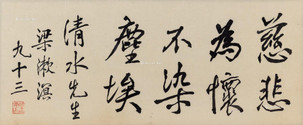 慈悲
為懷
不染
塵埃
清水先生
梁漱溟
九十三